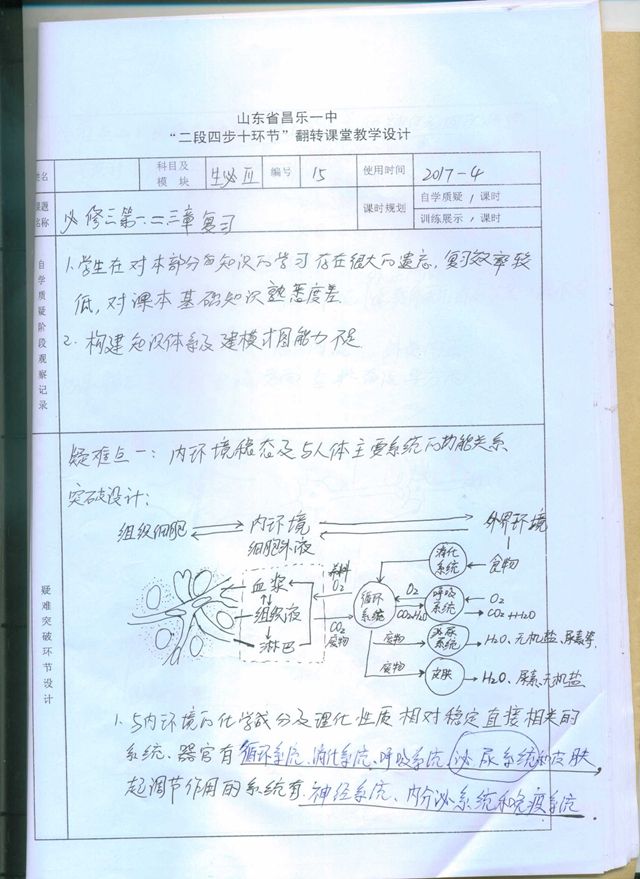 山东省昌乐一中
“二段四步十环节”翻转课堂教学设计
姓名
科目及模块 生必Ⅲ 编号 15 使用时间 2017-4
课题名称 必修三第一、二、三章复习 课时规划 自学质疑 / 课时
训练展示 / 课时
自学质疑阶段观察记录
1.学生在对本部分的知识的学习存在很大的遗忘,复习效率较
低,对课本基础知识熟悉度差
2.构建知识体系及建模才图能力不足
疑难突破环节设计
疑难点一:内环境稳态及与人体主要系统的功能关系
突破设计:
组织细胞 内环境 外界环境
细胞外液
消化系统 食物
血浆 养料 O2 循环系统 O2 呼吸系统 O2
组织液 CO2 H2O CO2+H2O
淋巴 CO2 废物 废物 泌尿系统 H2O、无机盐、尿素等
废物 皮肤 H2O、尿素、无机盐
1.与内环境的化学成分及理化性质相对稳定直接相关的
系统、器官有 循环系统、消化系统、呼吸系统、泌尿系统和皮肤,
起调节作用的系统有 神经系统、内分泌系统和免疫系统